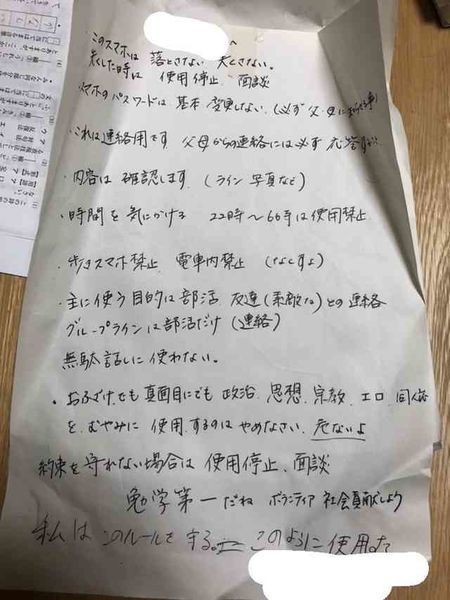 へ
・このスマホは 落とさない 失くさない。
失くした時は 使用停止 面談
スマホのパスワードは 基本 変更しない (必ず 父・母に
・これは連絡用です 父母からの連絡には必ず 応答
・内容は 確認します (ライン 写真など)
・時間を 気にかける 22時〜6時は使用禁止
・歩きスマホ禁止 電車内禁止 (なくすよ)
・主に使う目的は 部活 友達 (素敵な) との連絡
グループラインは部活だけ (連絡)
無駄話しに使わない。
・おふざけでも 真面目にでも 政治 思想 宗教 エロ
を むやみに 使用するのは やめなさい 危ないよ
約束を守れない場合は 使用停止、面談
勉学第一だね ボランティア 社会貢献しよう
私は このルールを 守る。 このように使用